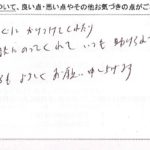 ついて、良い点・悪い点やその他お気づきの点がご
ぐに かけつけてくれたり
談にのってくれて いつも 助けられ
も よろしく お願い 申し上げます